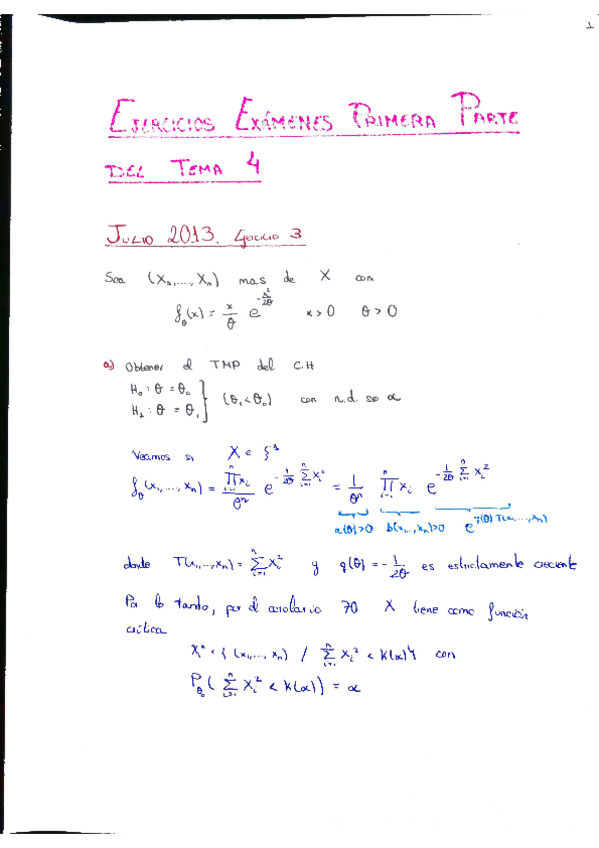 1
EJERCICIOS EXÁMENES PRIMERA PARTE
DEL TEMA 4
JULIO 2013. Ejercicio 3
Sea (X₁,..., Xₙ) mas de X con
f_θ(x) = x/θ e^{-x²/2θ} x>0 θ>0
a) Obtener el TMP del C.H
H₀: θ = θ₀
H₁: θ = θ₁ } (θ₁<θ₀) con n.d. se α
Veamos si X ∈ ξ¹
f_θ(x₁,...,xₙ) = ∏_{i=1}^n x_i / θⁿ e^{-1/2θ ∑_{i=1}^n x_i²} = 1/θⁿ ∏_{i=1}^n x_i e^{-1/2θ ∑_{i=1}^n x_i²}
a(θ)>0 b(x₁,...,xₙ)>0 e^{q(θ)T(x₁,...,xₙ)}
donde T(x₁,...,xₙ) = ∑_{i=1}^n x_i² y q(θ) = -1/2θ es estrictamente creciente
Por lo tanto, por el corolario 70 X tiene como función
crítica
X* = {(x₁,...,xₙ) / ∑_{i=1}^n x_i² < K(α)} con
P_θ₀(∑_{i=1}^n X_i² < K(α)) = α